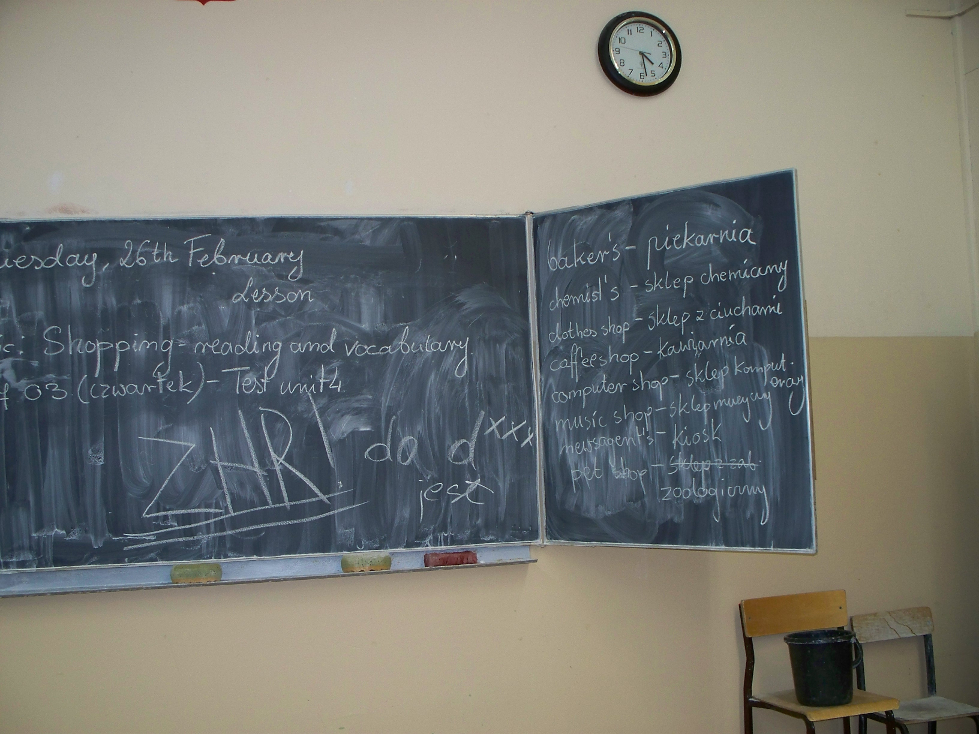 uesday, 26th February
Lesson
ic: Shopping - reading and vocabulary.
03 (czwartek) - Test unit 4
ZHR!
da d xxx
jest
baker's - piekarnia
chemist's - sklep chemiczny
clothes shop - sklep z ciuchami
coffee shop - kawiarnia
computer shop - sklep komput.
music shop - sklep muzyczny
newsagent's - kiosk
pet shop - sklep z zab.
zoologiczny
12
11
1
10
2
9
3
8
4
7
5
6